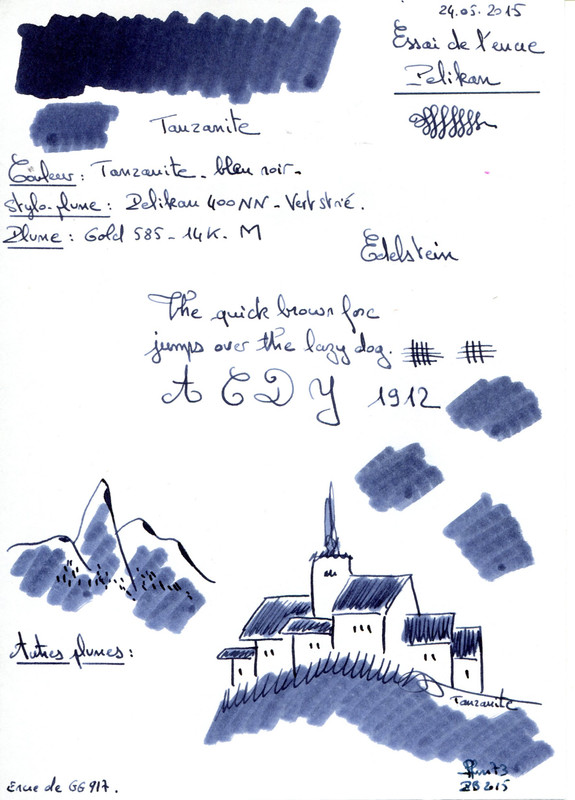 24.05.2015
Essai de l'encre
Pelikan
Tanzanite
Couleur : Tanzanite - bleu noir -
Stylo-plume : Pelikan 400NN - Vert strié.
Plume : Gold 585 - 14K - M
Edelstein
The quick brown fox
jumps over the lazy dog.
A C D Y 1912
Autres plumes :
Tanzanite
2015
Encre de GG917.